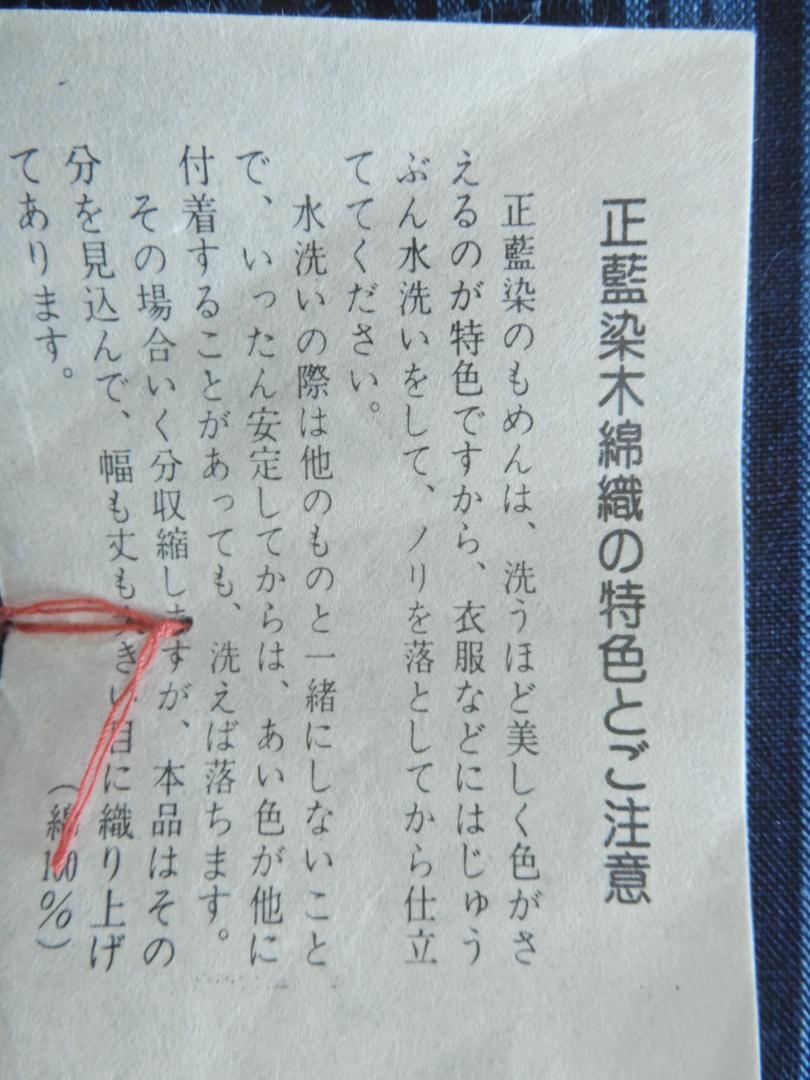 正藍染木綿織の特色とご注意
正藍染のもめんは、洗うほど美しく色がさ
えるのが特色ですから、衣服などにはじゅう
ぶん水洗いをして、ノリを落としてから仕立
ててください。
水洗いの際は他のものと一緒にしないこと
で、いったん安定してからは、あい色が他に
付着することがあっても、洗えば落ちます。
その場合いく分収縮しますが、本品はその
分を見込んで、幅も丈も大きい目に織り上げ
てあります。
(綿100%)